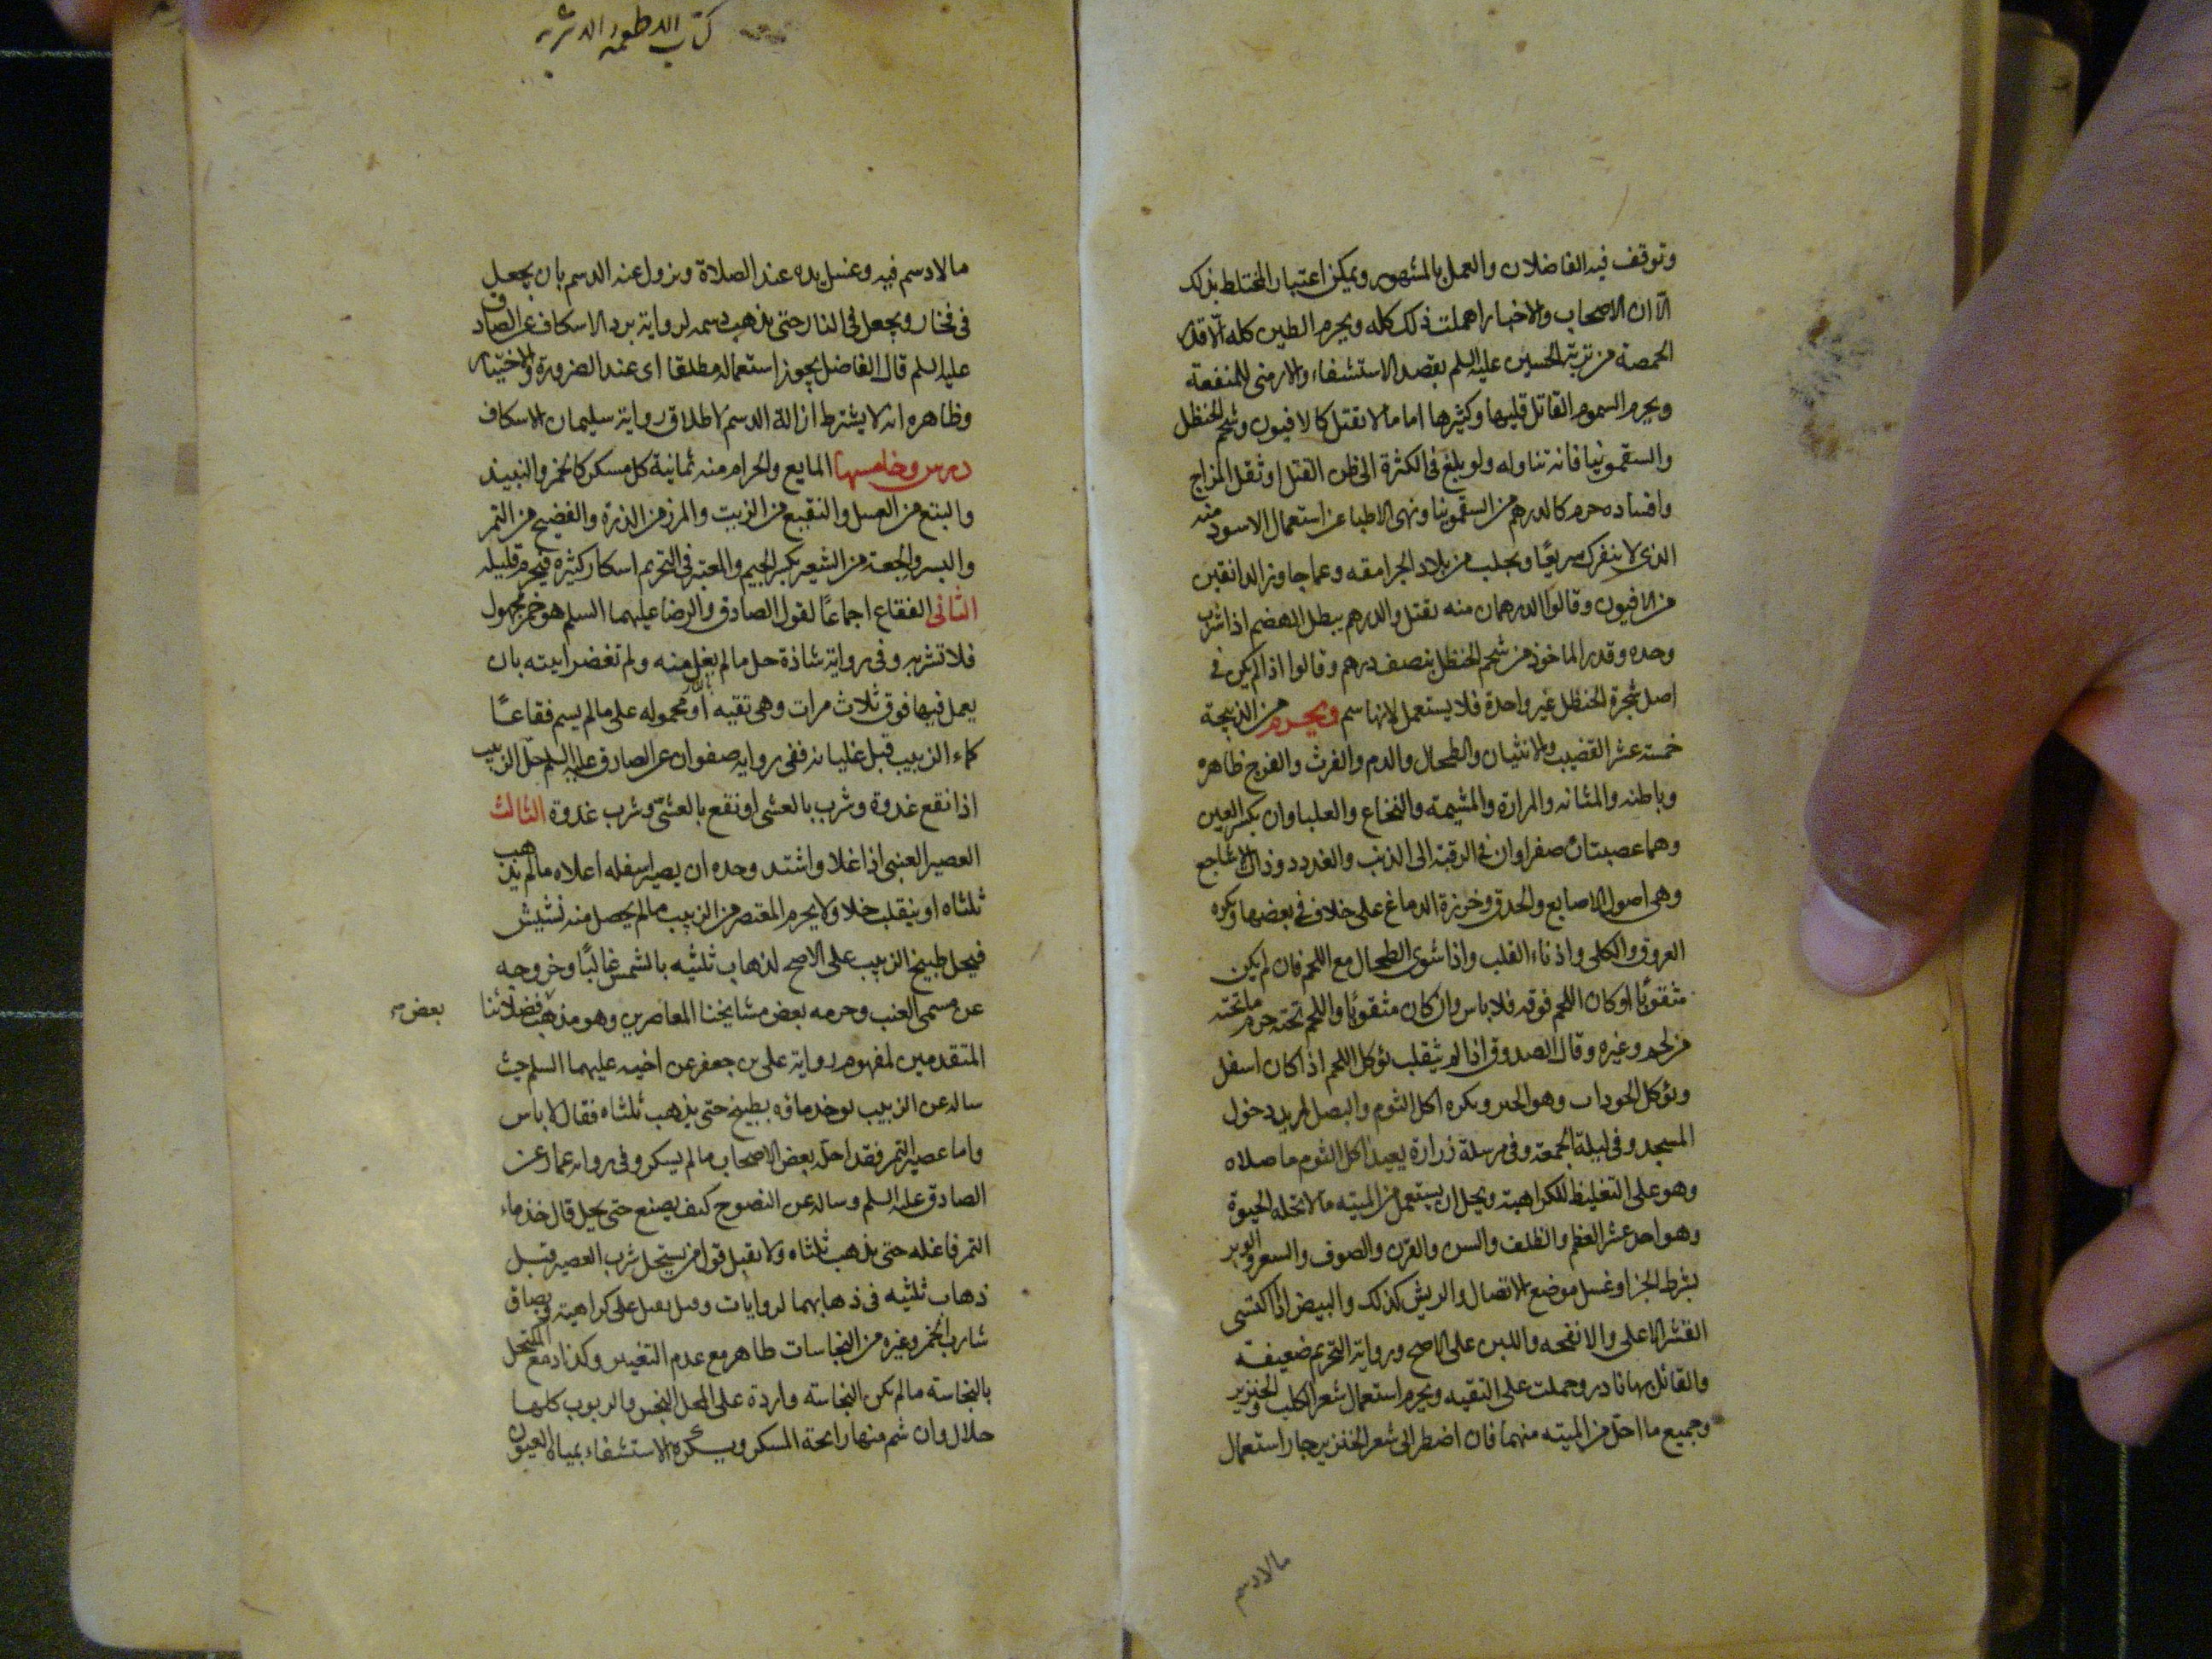 وتوقف فيه الفاضلان والعمل بالمشهور ويمكن اعتبار المختلط بذلك
الّا ان الاصحاب والاخبار اهملت ذلك كله ويحرم الطين كله الّا قدر
الحمصة من تربة الحسين عليه السلم بقصد الاستشفاء والارمنى للمنفعة
ويحرم السموم القاتل قليلها وكثيرها اما ما لا يقتل كالافيون وشحم الحنظل
والسقمونيا فانه تناوله ولو بلغ فى الكثرة الى ظن القتل او ثقل المزاج
وافساده حرم كالدرهم من السقمونيا ونهى الاطبا عن استعمال الاسود منه
الذى لا ينفرك سريعًا ويجلب من بلاد الجرامقه وعما جاوز الدانقين
من الافيون وقالوا الدرهمان منه يقتل والدرهم يبطل الهضم اذا شرب
وحده وقدر الماخوذ من شحم الحنظل بنصف درهم وقالوا اذا لم يكن فى
اصل شجرة الحنظل غير واحدة فلا يستعمل لانها سم ويحرم من الذبيحة
خمسة عشر القضيب والانثيان والطحال والدم والفرث والفرج ظاهره
وباطنه والمثانه والمرارة والمشيمة والنخاع والعلباوان بكسر العين
وهما عصبتان صفراوان فى الرقبة الى الذنب والغدد وذات الاشاجع
وهى اصول الاصابع والحدق وخرزة الدماغ على خلاف فى بعضها ويكره
العروق والكلى واذناء القلب واذا شوى الطحال مع اللحم فان لم يكن
مثقوبًا او كان اللحم فوقه فلا باس وان كان مثقوبًا واللحم تحته حرم ما تحته
من لحم وغيره وقال الصدوق اذا لم يثقب يؤكل اللحم اذا كان اسفل
ويؤكل الجوداب وهو الخبز ويكره اكل الثوم والبصل لمريد دخول
المسجد وفى ليلة الجمعة وفى مرسلة زرارة يعيد اكل الثوم ما صلاه
وهو على التغليظ للكراهية ويحل ان يستعمل من الميته ما لا تحله الحيوة
وهو احد عشر العظم والظلف والسن والقرن والصوف والشعر والوبر
بشرط الجز او غسل موضع الاتصال والريش كذلك والبيض اذا اكتسى
القشر الاعلى والانفحه واللبن على الاصح ورواية التحريم ضعيفة
والقائل بها نادر وحملت على التقيه ويحرم استعمال شعر الكلب والخنزير
وجميع ما احل من الميته منهما فان اضطر الى شعر الخنزير جاز استعمال
ما لا دسم
كتاب الاطعمه والاشربه
ما لا دسم فيه وغسل يده عند الصلاة ويزول عنه الدسم بان يجعل
فى فخار ويجعل فى النار حتى يذهب دسمه لرواية برد الاسكاف عن الصادق
عليه السلم قال الفاضل يجوز استعماله مطلقا اى عند الضرورة والاختيار
وظاهره انه لا يشترط ازالة الدسم لاطلاق رواية سليمان الاسكاف
درس وخامسها المايع والحرام منه ثمانية كل مسكر كالخمر والنبيذ
والبتع من العسل والنقيع من الزبيب والمزر من الذرة والفضيخ من التمر
والبسر والجعة من الشعير بكسر الجيم والمعتبر فى التحريم اسكار كثيره فيحرم قليله
الثانى الفقاع اجماعًا لقول الصادق والرضا عليهما السلم هو خمر مجهول
فلا تشربه وفى رواية شاذة حل ما لم يغل منه ولم تغضر ابيته بان
يعمل فيها فوق ثلاث مرات وهى تقيه او محموله على ما لم يسم فقاعًا
كماء الزبيب قبل غليانه ففى رواية صفوان عن الصادق عليه السلم حل الزبيب
اذا نقع غدوة وشرب بالعشى او نقع بالعشى وشرب غدوة الثالث
العصير العنبى اذا غلا واشتد وحده ان يصير اسفله اعلاه ما لم يذهب
ثلثاه او ينقلب خلا ولا يحرم المعتصر من الزبيب ما لم يحصل منه نشيش
فيحل طبيخ الزبيب على الاصح لذهاب ثلثيه بالشمس غالبًا وخروجه
عن مسمى العنب وحرمه بعض مشايخنا المعاصرين وهو مذهب فضلائنا
بعض
المتقدمين لمفهوم رواية على بن جعفر عن اخيه عليهما السلم حيث
ساله عن الزبيب يوخذ ماؤه بطبيخ حتى يذهب ثلثاه فقال لا باس
واما عصير التمر فقد احله بعض الاصحاب ما لم يسكر وفى رواية عمار عن
الصادق عليه السلم وساله عن النضوح كيف يصنع حتى يحل قال خذ ماء
التمر فاغله حتى يذهب ثلثاه ولا يقبل قول من يستحل شرب العصير قبل
ذهاب ثلثيه فى ذهابهما لروايات وقيل يقبل على كراهية وبصاق
شارب الخمر وغيره من النجاسات طاهر مع عدم التغير وكذا دمع المكتحل
بالنجاسة ما لم تكن النجاسة واردة على المحل النجس والربوب كلها
حلال وان شم منها رائحة المسكر ويكره الاستشفاء بمياه العيون